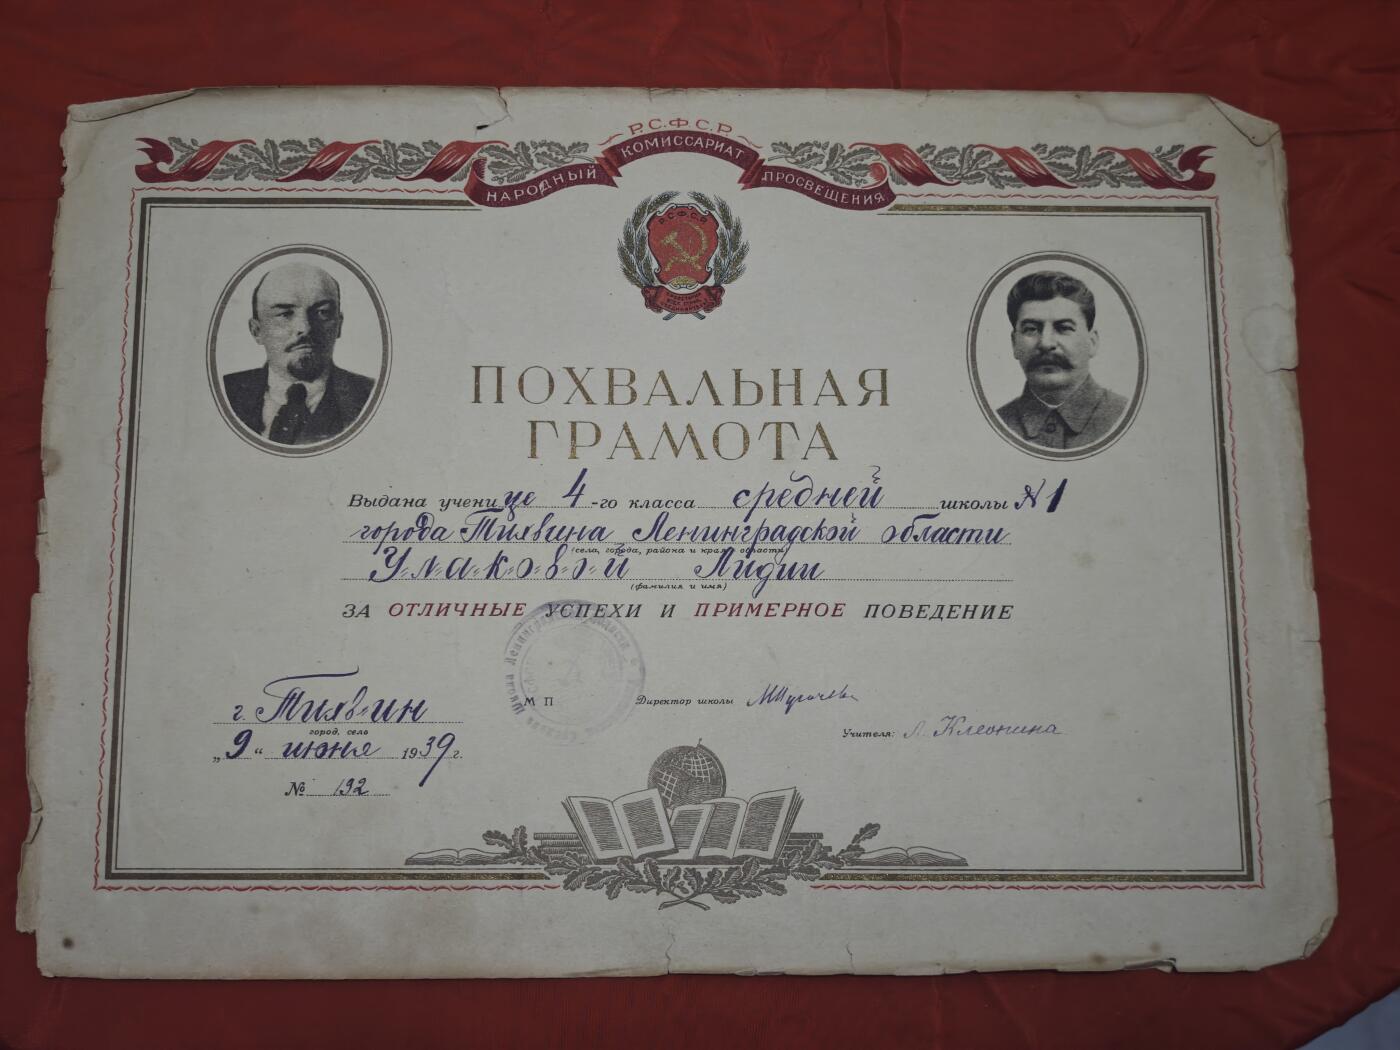 Р.С.Ф.С.Р.
НАРОДНЫЙ КОМИССАРИАТ ПРОСВЕЩЕНИЯ
Р.С.Ф.С.Р.
ПОХВАЛЬНАЯ
ГРАМОТА
Выдана ученице 4-го класса средней школы №1
города Тихвина Ленинградской области
(села, города, района и края, области)
Улаковой Лидии
(фамилия и имя)
ЗА ОТЛИЧНЫЕ УСПЕХИ И ПРИМЕРНОЕ ПОВЕДЕНИЕ
г. Тихвин
город, село
„9“ июня 1939 г.
№ 192
М П
Директор школы
Учителя: Л. Клеонина